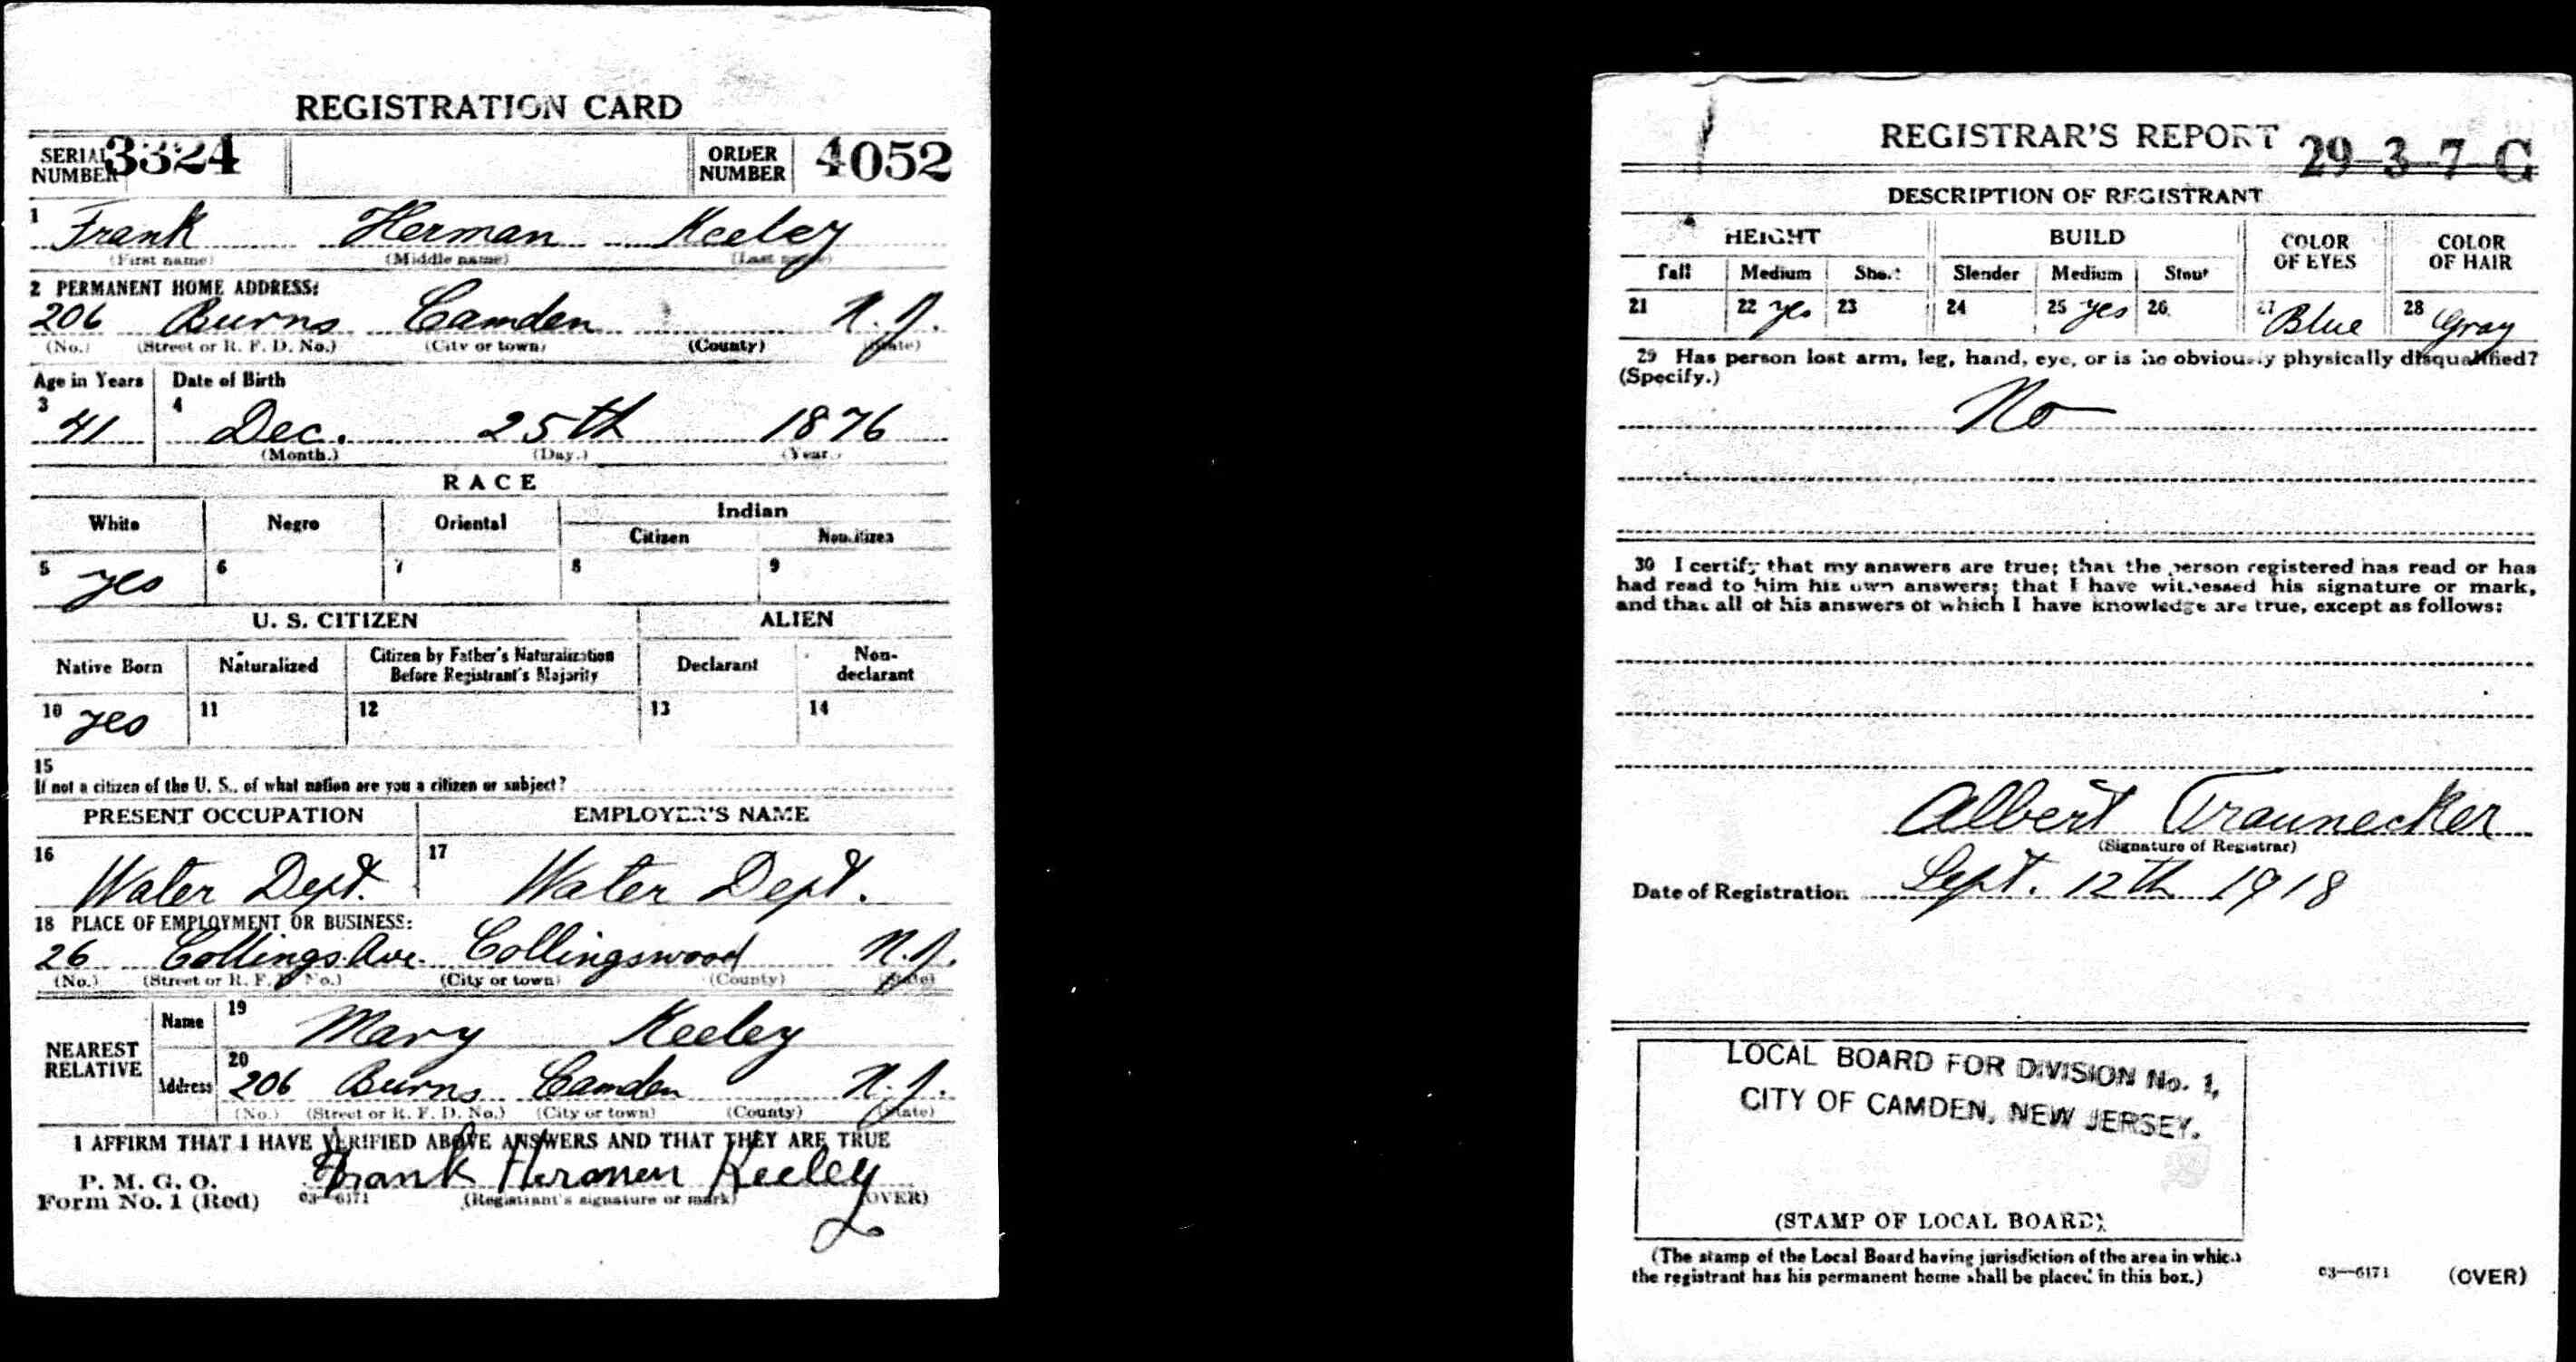 REGISTRATION CARD
SERIAL NUMBER 3324 ORDER NUMBER 4052
1 Frank Herman Keeley
(First name) (Middle name) (Last name)
2 PERMANENT HOME ADDRESS:
206 Burns Camden N.J.
(No.) (Street or R. F. D. No.) (City or town) (County) (State)
Age in Years Date of Birth
3 41 4 Dec. 25th 1876
(Month.) (Day.) (Year.)
RACE
White Negro Oriental Indian
Citizen Noncitizen
5 yes 6 7 8 9
U. S. CITIZEN ALIEN
Native Born Naturalized Citizen by Father's Naturalization Before Registrant's Majority Declarant Non-declarant
10 yes 11 12 13 14
15
If not a citizen of the U. S., of what nation are you a citizen or subject?
PRESENT OCCUPATION EMPLOYER'S NAME
16 Water Dept. 17 Water Dept.
18 PLACE OF EMPLOYMENT OR BUSINESS:
26 Collings Ave. Collingswood N.J.
(No.) (Street or R. F. D. No.) (City or town) (County) (State)
NEAREST RELATIVE Name 19 Mary Keeley
Address 20 206 Burns Camden N.J.
(No.) (Street or R. F. D. No.) (City or town) (County) (State)
I AFFIRM THAT I HAVE VERIFIED ABOVE ANSWERS AND THAT THEY ARE TRUE
P. M. G. O.
Form No. 1 (Red) 03—6171 Frank Herman Keeley
(Registrant's signature or mark) (OVER)
REGISTRAR'S REPORT 29-3-7-C
DESCRIPTION OF REGISTRANT
HEIGHT BUILD COLOR OF EYES COLOR OF HAIR
Tall Medium Short Slender Medium Stout
21 22 yes 23 24 25 yes 26 27 Blue 28 Gray
29 Has person lost arm, leg, hand, eye, or is he obviously physically disqualified?
(Specify.)
No
30 I certify that my answers are true; that the person registered has read or has
had read to him his own answers; that I have witnessed his signature or mark,
and that all of his answers of which I have knowledge are true, except as follows:
Albert Traunecker
(Signature of Registrar)
Date of Registration Sept. 12th 1918
LOCAL BOARD FOR DIVISION No. 1,
CITY OF CAMDEN, NEW JERSEY.
(STAMP OF LOCAL BOARD)
(The stamp of the Local Board having jurisdiction of the area in which
the registrant has his permanent home shall be placed in this box.)
03—6171 (OVER)